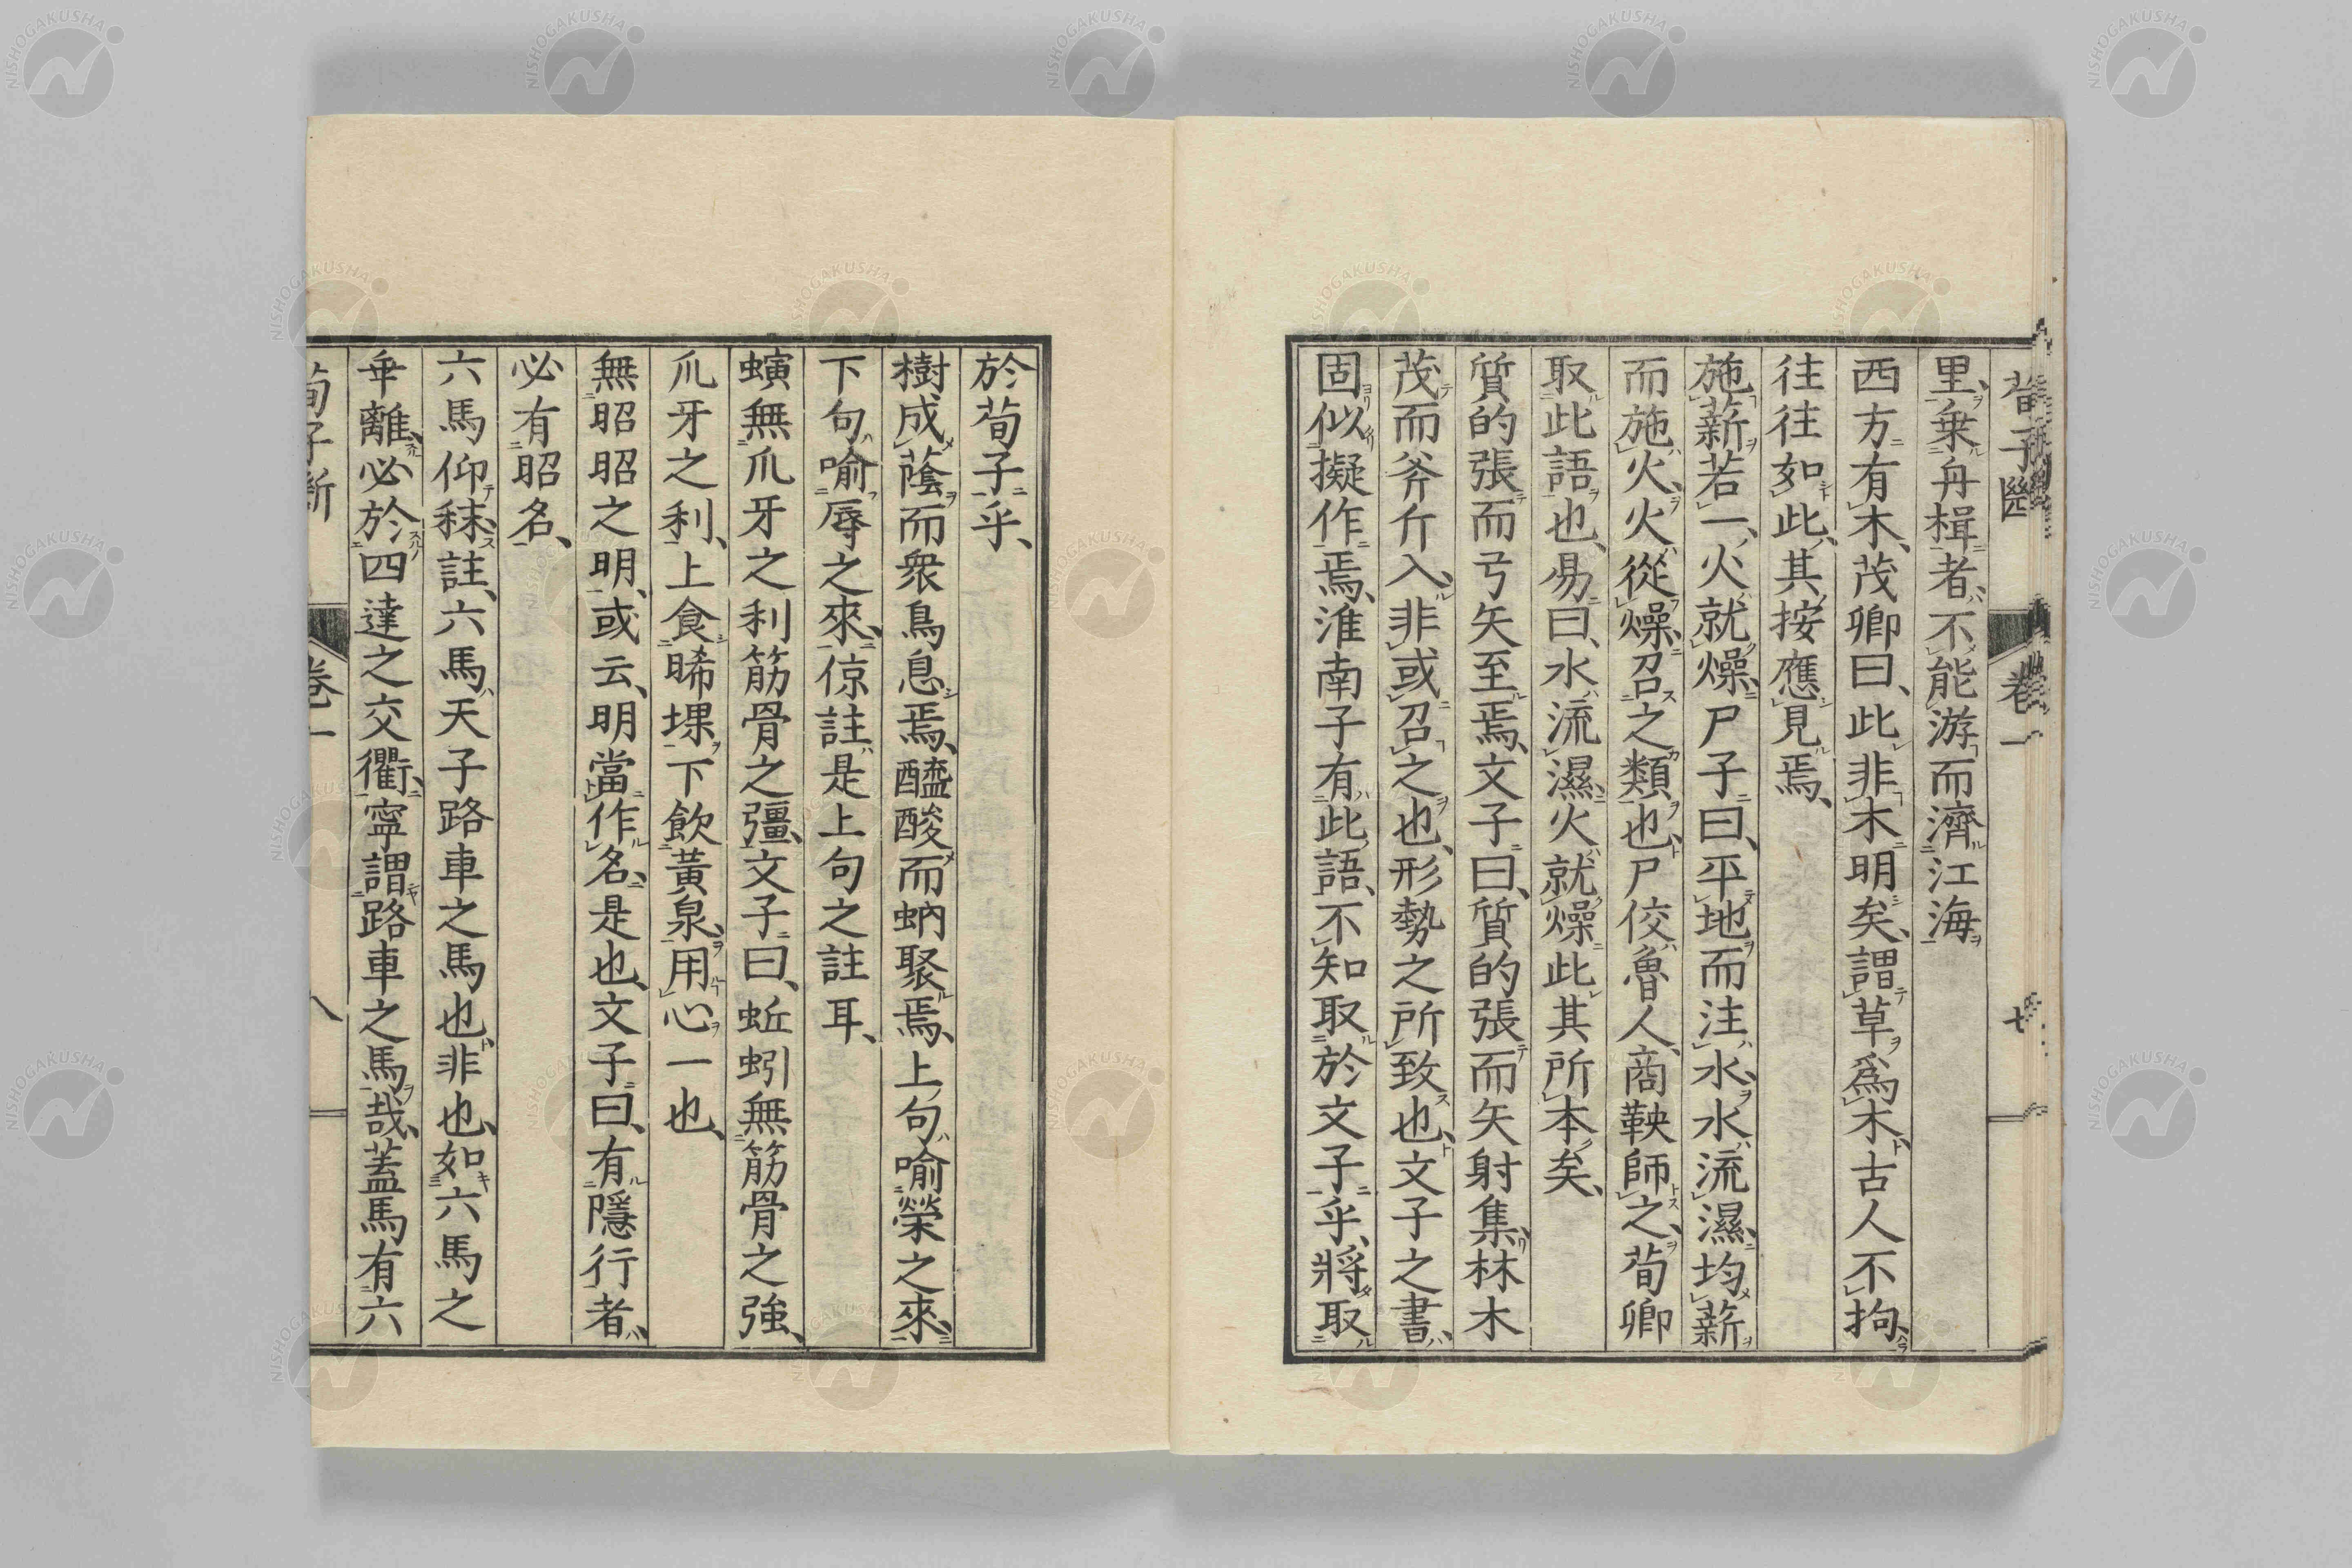 荀子 卷一 七
里、乗舟楫者、不能游而濟江海
西方有木、茂卿曰、此非木明矣、謂草爲木、古人不拘、
往往如此、其按應見焉、
施薪若一、火就燥、尸子曰、平地而注水、水流濕、均薪
而施火、火從燥、召之類也、尸佼魯人、商鞅師之、荀卿
取此語也、易曰、水流濕、火就燥、此其所本矣、
質的張而弓矢至焉、文子曰、質的張而矢射集、林木
茂而斧斤入、非或召之也、形勢之所致也、文子之書、
固似擬作焉、淮南子有此語、不知取於文子乎、將取
於荀子乎、
樹成蔭而衆鳥息焉、醯酸而蚋聚焉、上句喻榮之來、
下句喻辱之來、倞註是上句之註耳、
螾無爪牙之利筋骨之彊、文子曰、蚯蚓無筋骨之強、
爪牙之利、上食晞堁、下飲黃泉、用心一也、
無昭昭之明、或云、明當作名、是也、文子曰、有隱行者、
必有昭名、
六馬仰秣、註、六馬天子路車之馬也、非也、如六馬之
乖離、必於四達之交衢、寧謂路車之馬哉、蓋馬有六
荀子斷 卷一 八
NISHOGAKUSHA